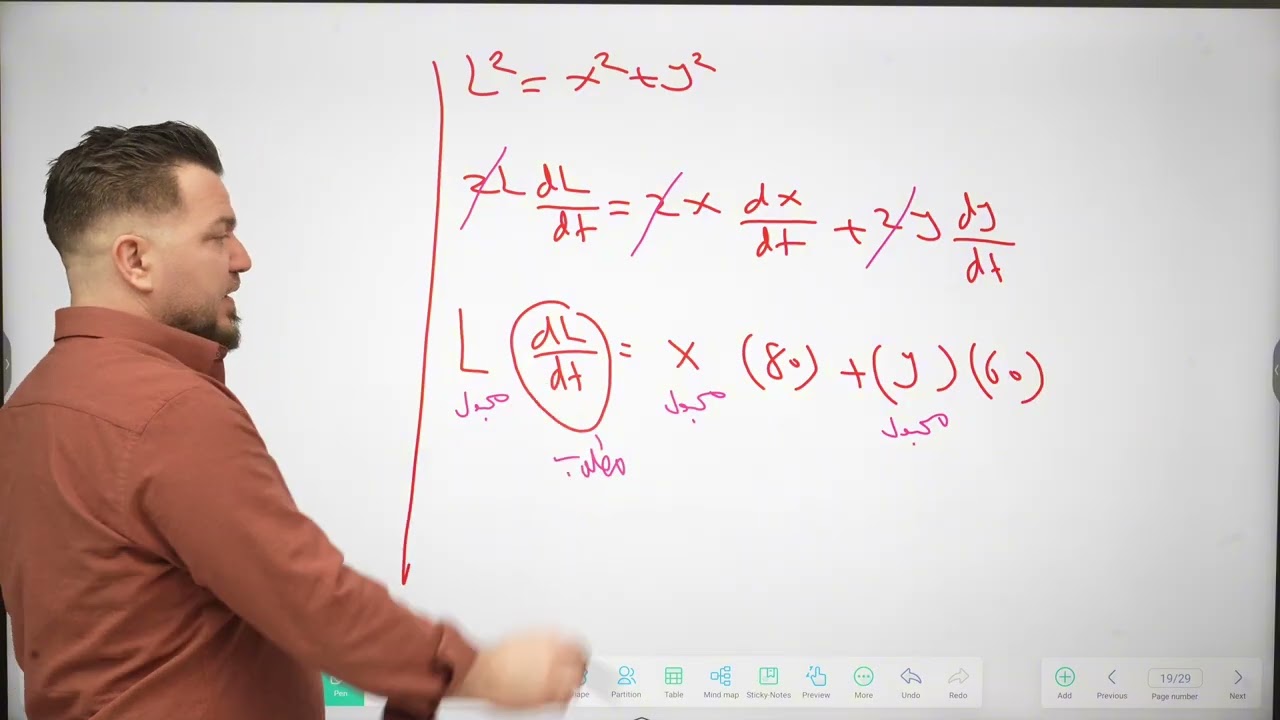 L² = x² + y²
2L dL/dt = 2x dx/dt + 2y dy/dt
L dL/dt = x (80) + (y) (60)
مجهول مجهول مجهول
Pen
Partition Table Mind map Sticky-Notes Preview More Undo Redo
Add Previous 19/29 Page number Next